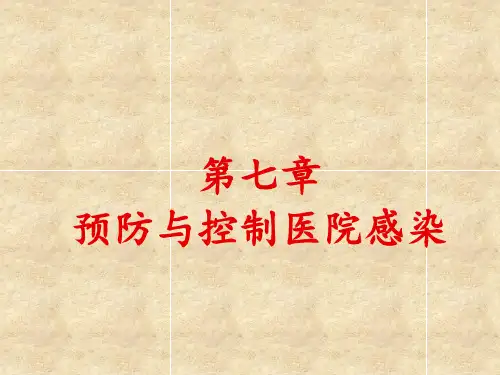 第七章
预防与控制医院感染